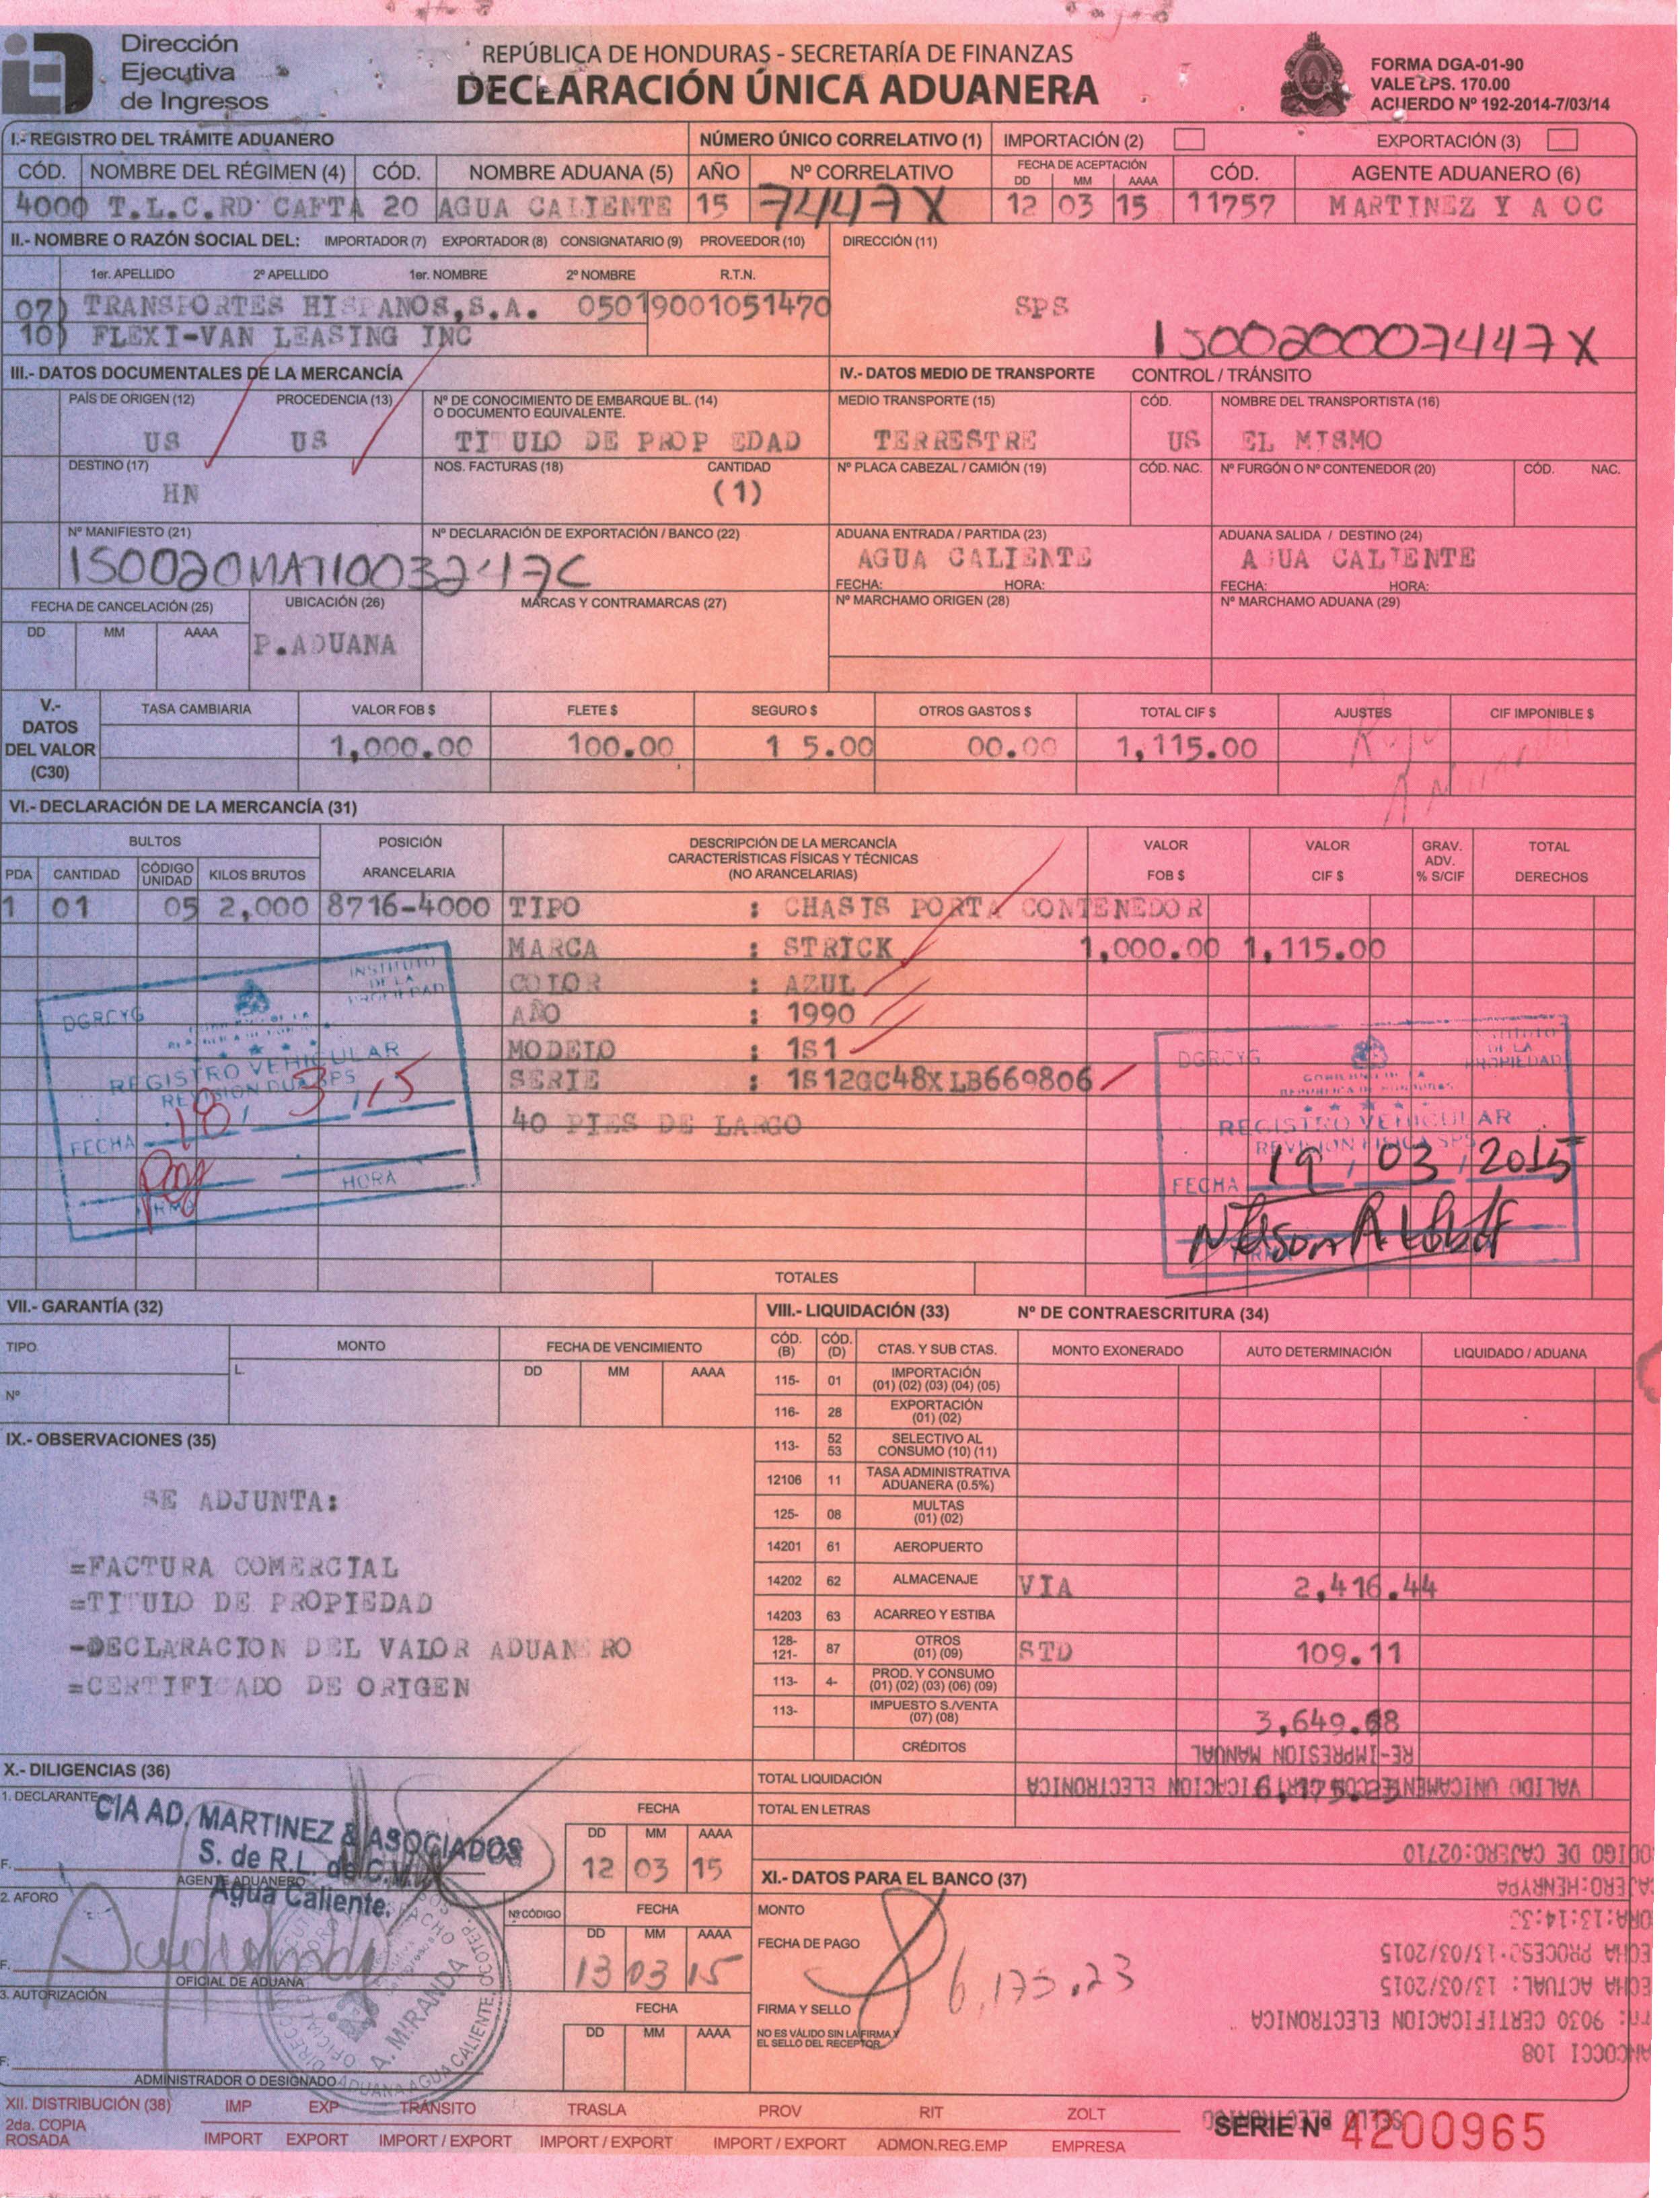 Dirección
Ejecutiva
de Ingresos
REPÚBLICA DE HONDURAS - SECRETARÍA DE FINANZAS
DECLARACIÓN ÚNICA ADUANERA
FORMA DGA-01-90
VALE LPS. 170.00
ACUERDO Nº 192-2014-7/03/14
I.- REGISTRO DEL TRÁMITE ADUANERO NÚMERO ÚNICO CORRELATIVO (1) IMPORTACIÓN (2) EXPORTACIÓN (3)
CÓD. NOMBRE DEL RÉGIMEN (4) CÓD. NOMBRE ADUANA (5) AÑO Nº CORRELATIVO FECHA DE ACEPTACIÓN DD MM AAAA CÓD. AGENTE ADUANERO (6)
4000 T.L.C.RD CAFTA 20 AGUA CALIENTE 15 7447X 12 03 15 11757 MARTINEZ Y A OC
II.- NOMBRE O RAZÓN SOCIAL DEL: IMPORTADOR (7) EXPORTADOR (8) CONSIGNATARIO (9) PROVEEDOR (10) DIRECCIÓN (11)
1er. APELLIDO 2º APELLIDO 1er. NOMBRE 2º NOMBRE R.T.N.
07) TRANSPORTES HISPANOS,S.A. 05019001051470 SPS
10) FLEXI-VAN LEASING INC
1500200007447X
III.- DATOS DOCUMENTALES DE LA MERCANCÍA IV.- DATOS MEDIO DE TRANSPORTE CONTROL / TRÁNSITO
PAÍS DE ORIGEN (12) PROCEDENCIA (13) Nº DE CONOCIMIENTO DE EMBARQUE BL. (14) O DOCUMENTO EQUIVALENTE. MEDIO TRANSPORTE (15) CÓD. NOMBRE DEL TRANSPORTISTA (16)
US US TITULO DE PROP EDAD TERRESTRE US EL MISMO
DESTINO (17) NOS. FACTURAS (18) CANTIDAD Nº PLACA CABEZAL / CAMIÓN (19) CÓD. NAC. Nº FURGÓN O Nº CONTENEDOR (20) CÓD. NAC.
HN (1)
Nº MANIFIESTO (21) Nº DECLARACIÓN DE EXPORTACIÓN / BANCO (22) ADUANA ENTRADA / PARTIDA (23) ADUANA SALIDA / DESTINO (24)
AGUA CALIENTE A UA CALIENTE
FECHA: HORA: FECHA: HORA:
FECHA DE CANCELACIÓN (25) UBICACIÓN (26) MARCAS Y CONTRAMARCAS (27) Nº MARCHAMO ORIGEN (28) Nº MARCHAMO ADUANA (29)
DD MM AAAA P.ADUANA
V.- DATOS DEL VALOR (C30) TASA CAMBIARIA VALOR FOB $ FLETE $ SEGURO $ OTROS GASTOS $ TOTAL CIF $ AJUSTES CIF IMPONIBLE $
1,000.00 100.00 1 5.00 00.00 1,115.00
VI.- DECLARACIÓN DE LA MERCANCÍA (31)
BULTOS POSICIÓN ARANCELARIA DESCRIPCIÓN DE LA MERCANCÍA CARACTERÍSTICAS FÍSICAS Y TÉCNICAS (NO ARANCELARIAS) VALOR FOB $ VALOR CIF $ GRAV. ADV. % S/CIF TOTAL DERECHOS
PDA CANTIDAD CÓDIGO UNIDAD KILOS BRUTOS
1 01 05 2,000 8716-4000 TIPO : CHASIS PORTA CONTENEDOR
MARCA : STRICK 1,000.00 1,115.00
COLOR : AZUL
AÑO : 1990
MODELO : 1S1
SERIE : 1S12GC48XLB669806
40 PIES DE LARGO
INSTITUTO DE LA PROPIEDAD
DGRCYG
REGISTRO VEHICULAR
REVISION DUA SPS
FECHA 18/ 3 /15
HORA
DGRCYG INSTITUTO DE LA PROPIEDAD
REGISTRO VEHICULAR
REVISION FISICA SPS
FECHA 19 / 03 / 2015
TOTALES
VII.- GARANTÍA (32) VIII.- LIQUIDACIÓN (33) Nº DE CONTRAESCRITURA (34)
TIPO MONTO FECHA DE VENCIMIENTO CÓD. (B) CÓD. (D) CTAS. Y SUB CTAS. MONTO EXONERADO AUTO DETERMINACIÓN LIQUIDADO / ADUANA
Nº L. DD MM AAAA
115- 01 IMPORTACIÓN (01) (02) (03) (04) (05)
116- 28 EXPORTACIÓN (01) (02)
113- 52 53 SELECTIVO AL CONSUMO (10) (11)
12106 11 TASA ADMINISTRATIVA ADUANERA (0.5%)
125- 08 MULTAS (01) (02)
14201 61 AEROPUERTO
14202 62 ALMACENAJE VIA 2,416.44
14203 63 ACARREO Y ESTIBA
128- 121- 87 OTROS (01) (09) STD 109.11
113- 4- PROD. Y CONSUMO (01) (02) (03) (06) (09)
113- IMPUESTO S./VENTA (07) (08) 3,649.68
CRÉDITOS
IX.- OBSERVACIONES (35)
SE ADJUNTA:
=FACTURA COMERCIAL
=TITULO DE PROPIEDAD
-DECLARACION DEL VALOR ADUANERO
=CERTIFICADO DE ORIGEN
RE-IMPRESION MANUAL
VALIDO UNICAMENTE CON CERTIFICACION ELECTRONICA
TOTAL LIQUIDACIÓN 6,175.23
TOTAL EN LETRAS
X.- DILIGENCIAS (36)
1. DECLARANTE
CIA AD. MARTINEZ & ASOCIADOS
S. de R.L. de C.V.
Agua Caliente.
F. AGENTE ADUANERO
FECHA DD MM AAAA
12 03 15
2. AFORO Nº CÓDIGO FECHA DD MM AAAA
13 03 15
F. OFICIAL DE ADUANA
A. MIRANDA
3. AUTORIZACIÓN FECHA DD MM AAAA
F. ADMINISTRADOR O DESIGNADO
XI.- DATOS PARA EL BANCO (37)
MONTO
FECHA DE PAGO
6,175.23
FIRMA Y SELLO
NO ES VÁLIDO SIN LA FIRMA Y EL SELLO DEL RECEPTOR
ODIGO DE CAJERO:02710
AJERO:HENRYPA
ORA:13:14:33
ECHA PROCESO:13/03/2015
ECHA ACTUAL: 13/03/2015
9030 CERTIFICACION ELECTRONICA
ANCOCCI 108
XII. DISTRIBUCIÓN (38) IMP EXP TRÁNSITO TRASLA PROV RIT ZOLT
2da. COPIA ROSADA IMPORT EXPORT IMPORT / EXPORT IMPORT / EXPORT IMPORT / EXPORT ADMON.REG.EMP EMPRESA
SERIE Nº 4200965